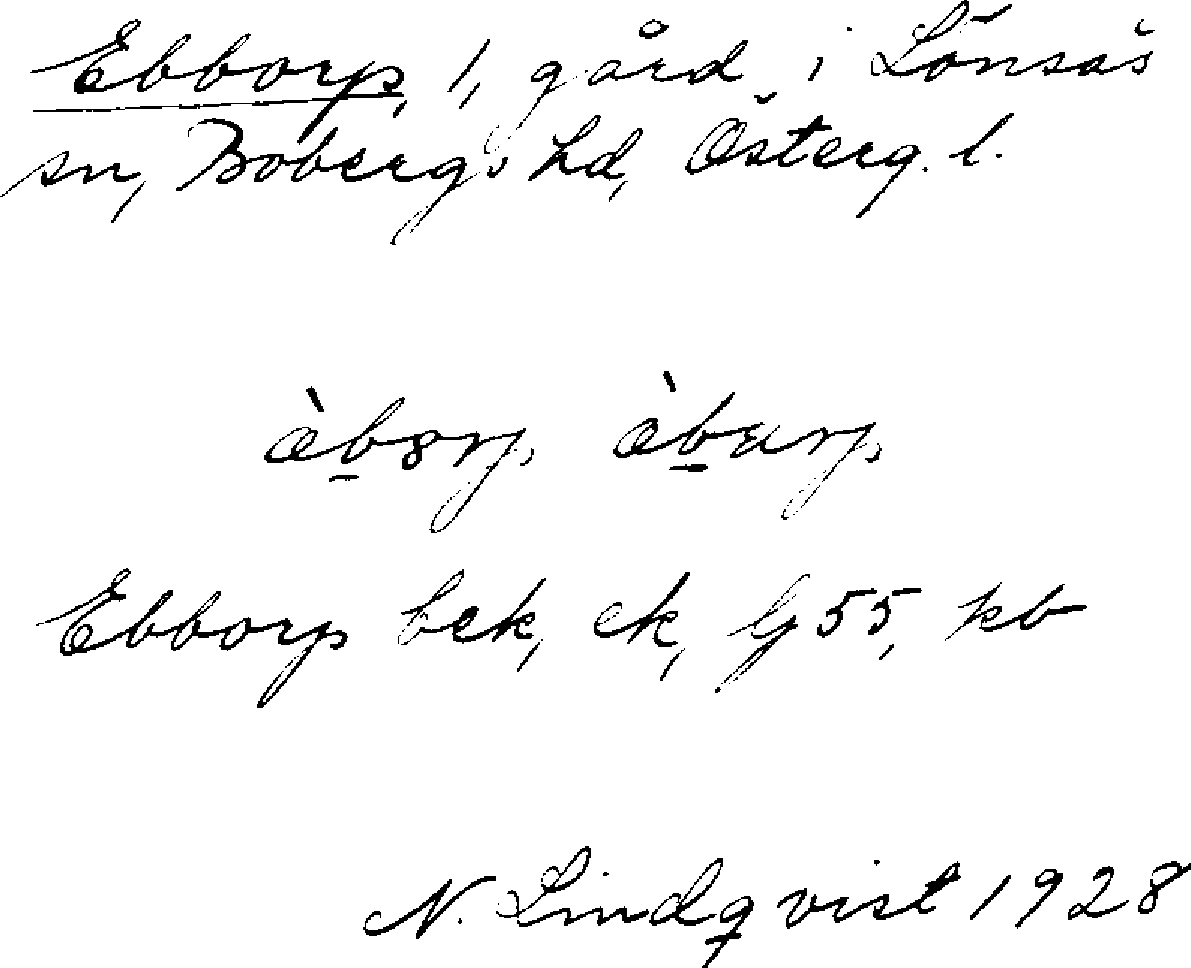 Ebborp, 1, gård i Lönsås
sn, Bobergs hd, Österg. l.
Ebborp bek, ek, Gj 55, kb
N. Lindqvist 1928